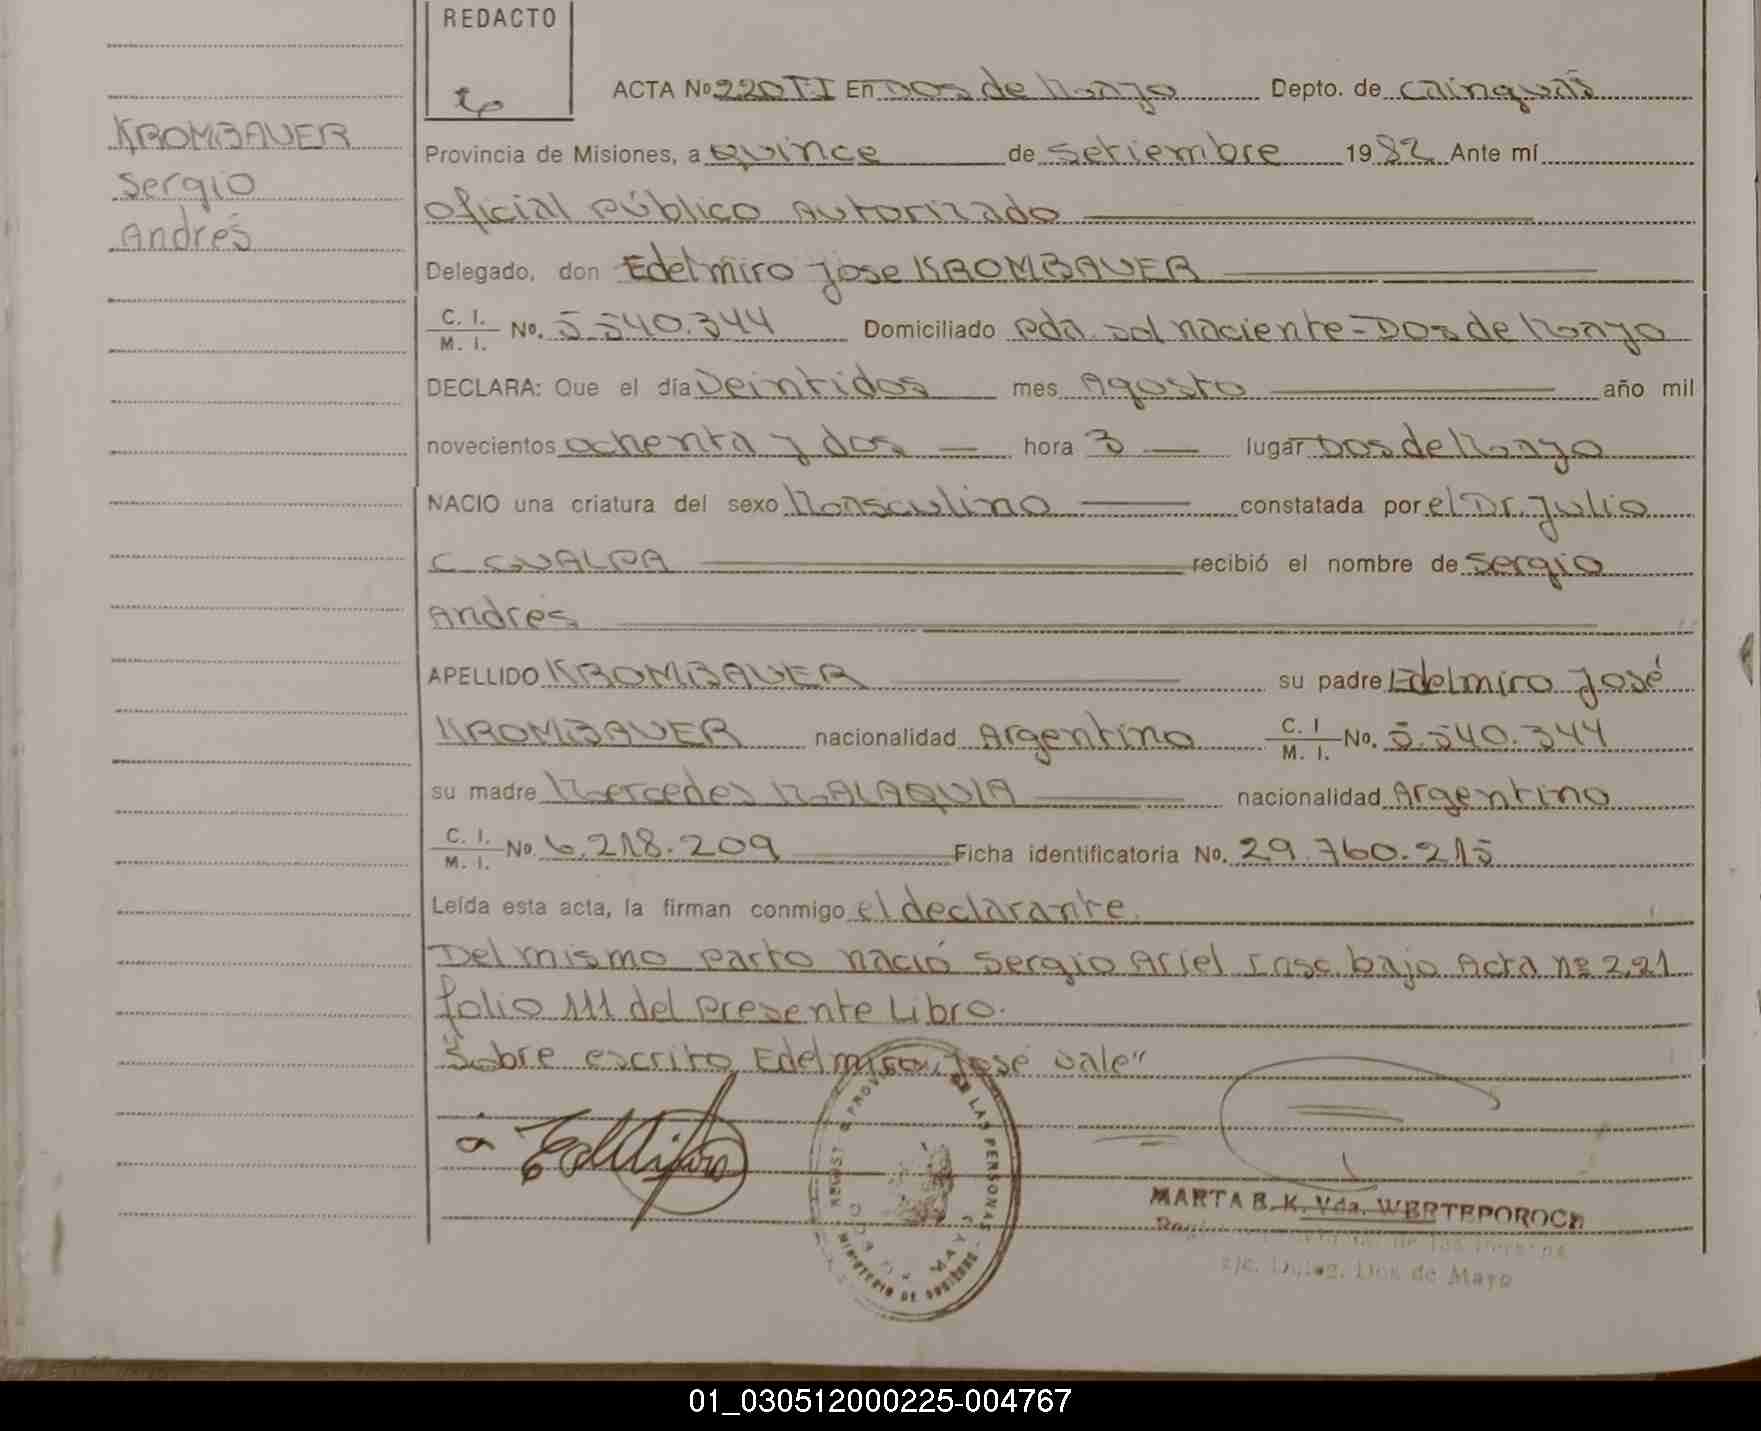 REDACTO
ACTA No 220 TI En Dos de Mayo Depto. de Cainguás
KROMBAUER
Sergio
Andrés
Provincia de Misiones, a quince de setiembre 1982 Ante mí
oficial Público Autorizado
Delegado, don Edelmiro Jose KROMBAUER
C. I. / M. I. No. 5.540.344 Domiciliado Pda. sol naciente - Dos de Mayo
DECLARA: Que el día Veintidos mes Agosto año mil
novecientos ochenta y dos hora 3 lugar Dos de Mayo
NACIO una criatura del sexo Masculino constatada por el Dr. Julio
C GUALPA recibió el nombre de Sergio
Andres
APELLIDO KROMBAUER su padre Edelmiro José
KROMBAUER nacionalidad Argentino C. I / M. I. No. 5.540.344
su madre Mercedes MALAQUIA nacionalidad Argentino
C. I. / M. I. No. 6.218.209 Ficha identificatoria No. 29.760.215
Leída esta acta, la firman conmigo el declarante.
Del mismo parto nació Sergio Ariel Insc. bajo Acta nº 221
folio 111 del Presente Libro.
Sobre escrito, Edelmiro, José vale"
DE LAS PERSONAS
MINISTERIO DE GOBIERNO
MARTA B. K. Vda. WERTEPOROCH
Deleg. Dos de Mayo
01_030512000225-004767